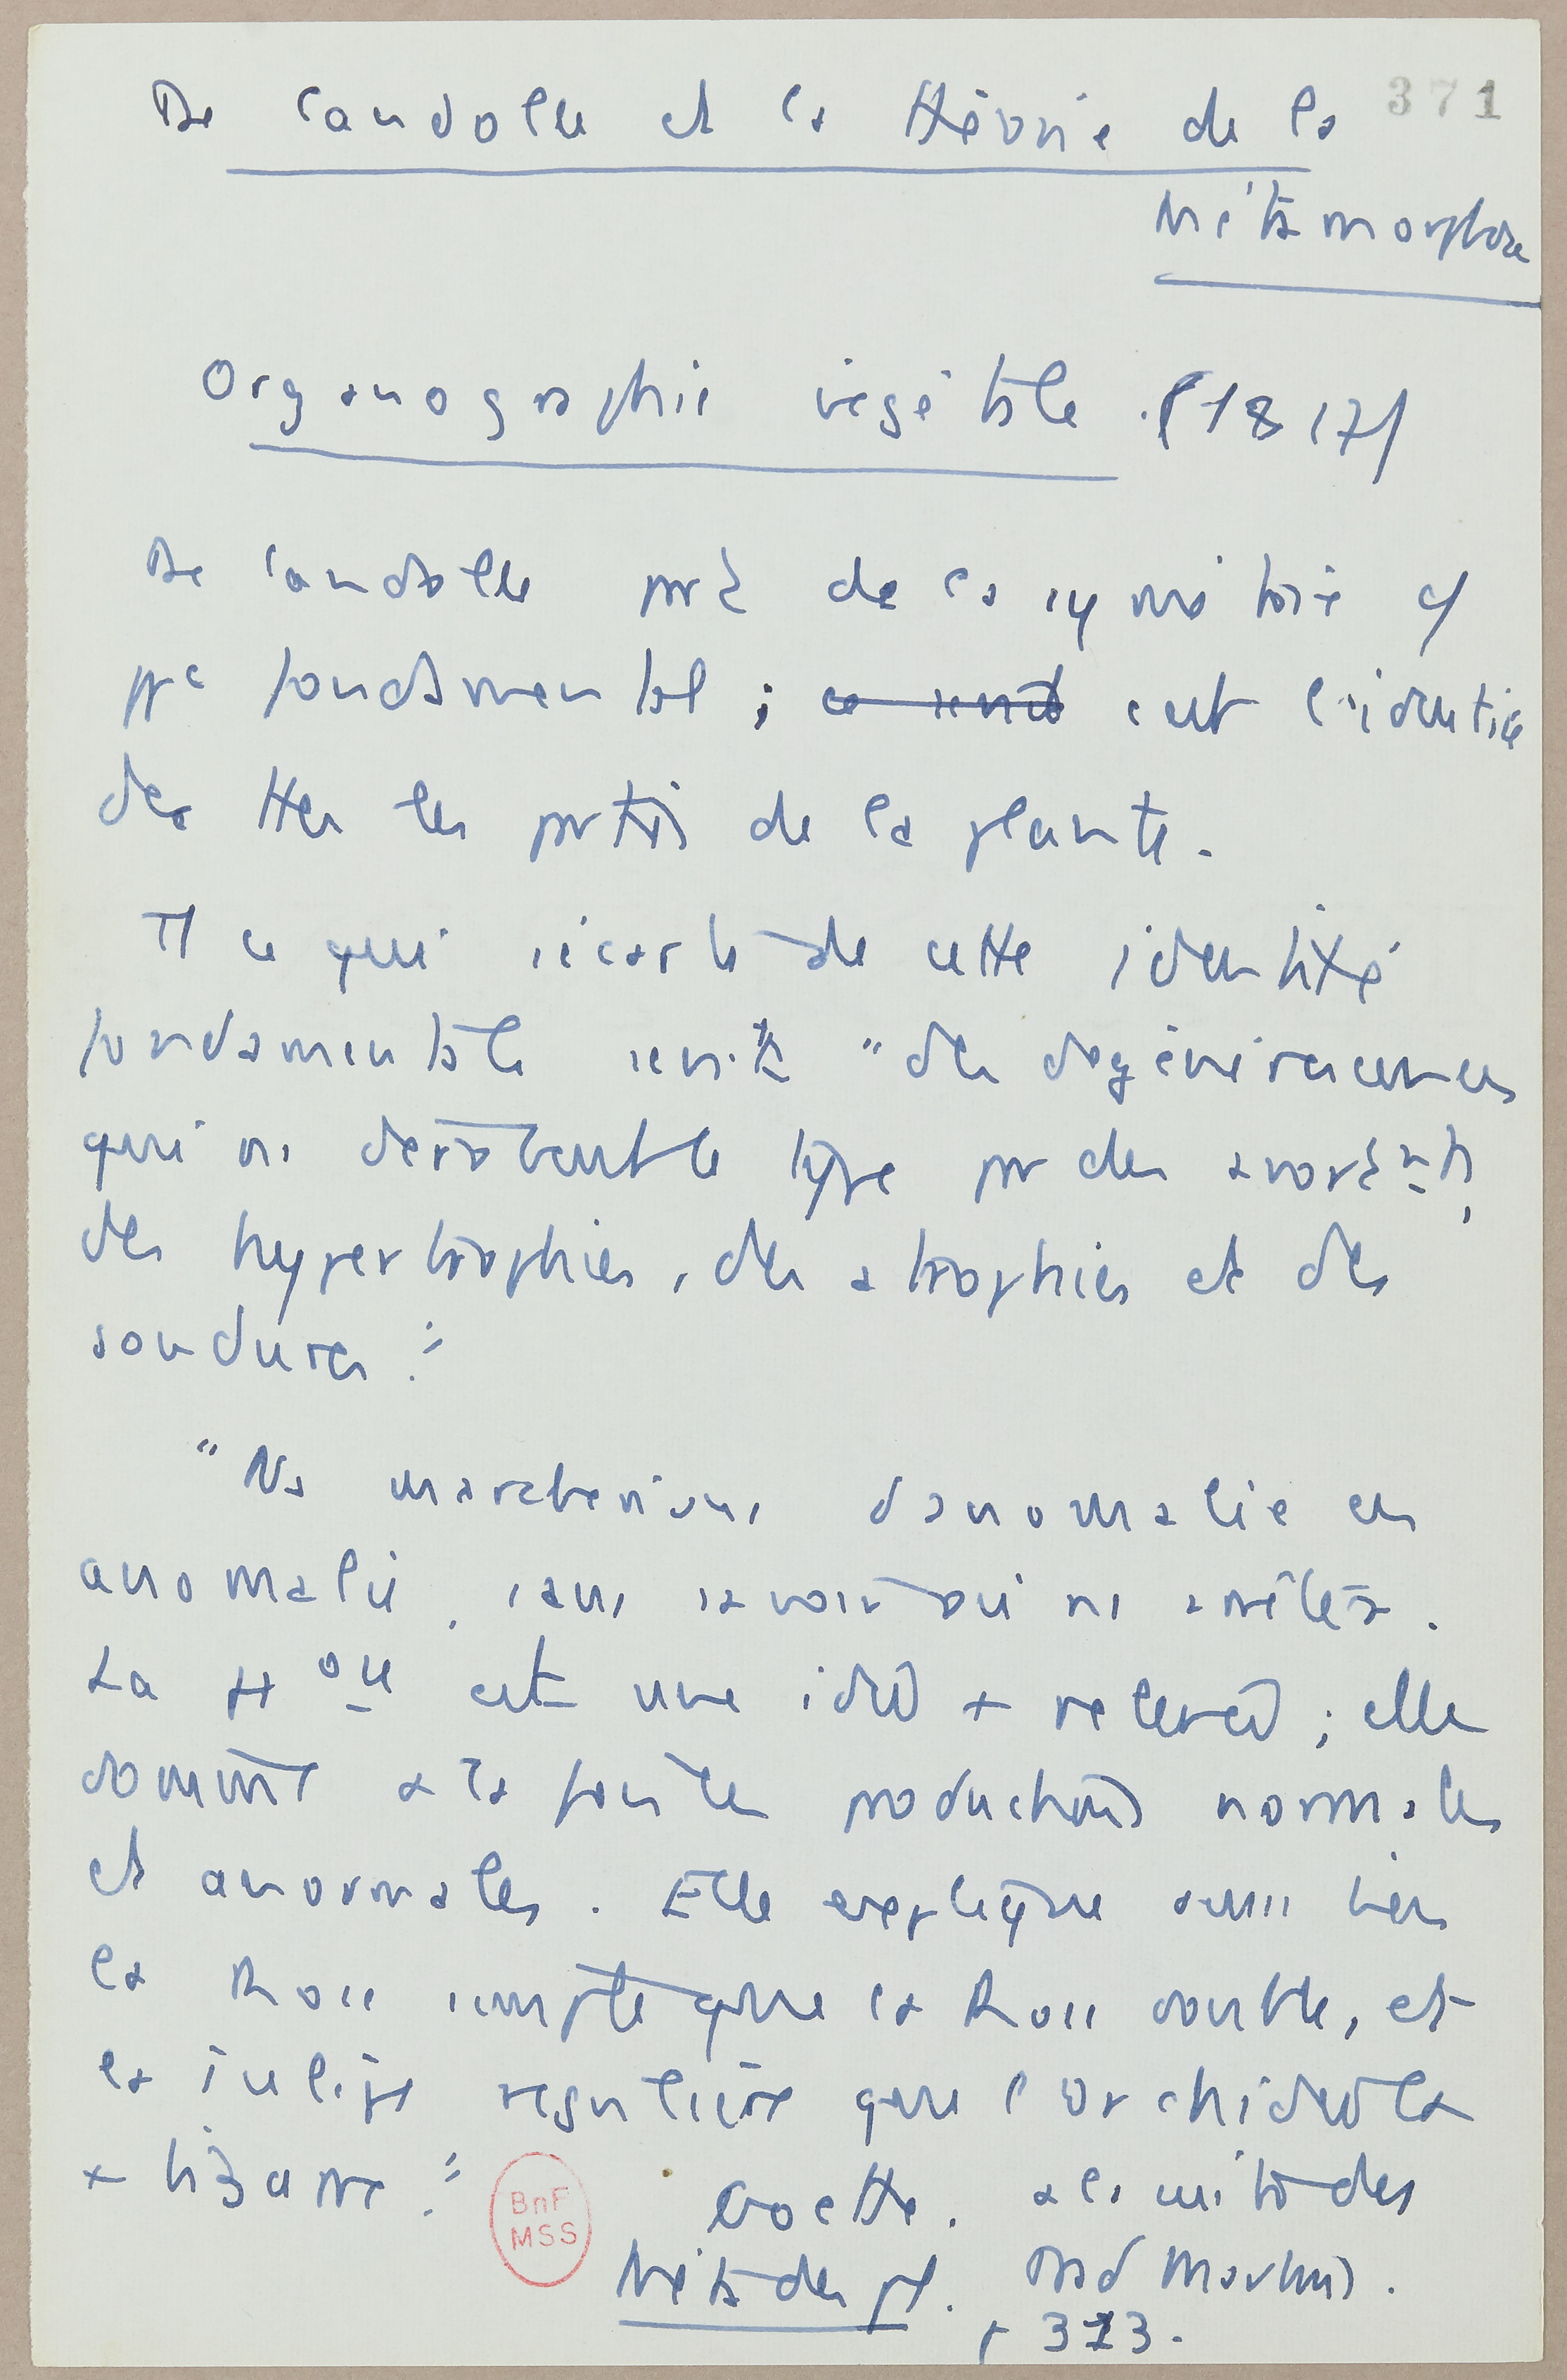 371
De Candolle et la théorie de la
Métamorphose
Organographie végétale. (1817)
De Candolle de la symétrie c/
pce fondamental ; ce serait c'est l'identité
des ttes les parties de la plante.
Tt ce qui s'écarte de cette identité
fondamentale serait "des dégénérescences
qui ns dérobent le type par des avortnts,
des hypertrophies, des atrophies et des
soudures".
"Ns marcherions d'anomalie en
anomalie, sans savoir où ns arrêter.
La est une idée + relevée ; elle
domine à la fois les productions normales
et anormales. Elle explique aussi bien
la Rose simple que la Rose double, et
la tulipe régulière que l'orchidée la
+ bizarre".
Goethe. à la suite des
Méta des pl. Trad Martins.
p 313.
BnF
MSS